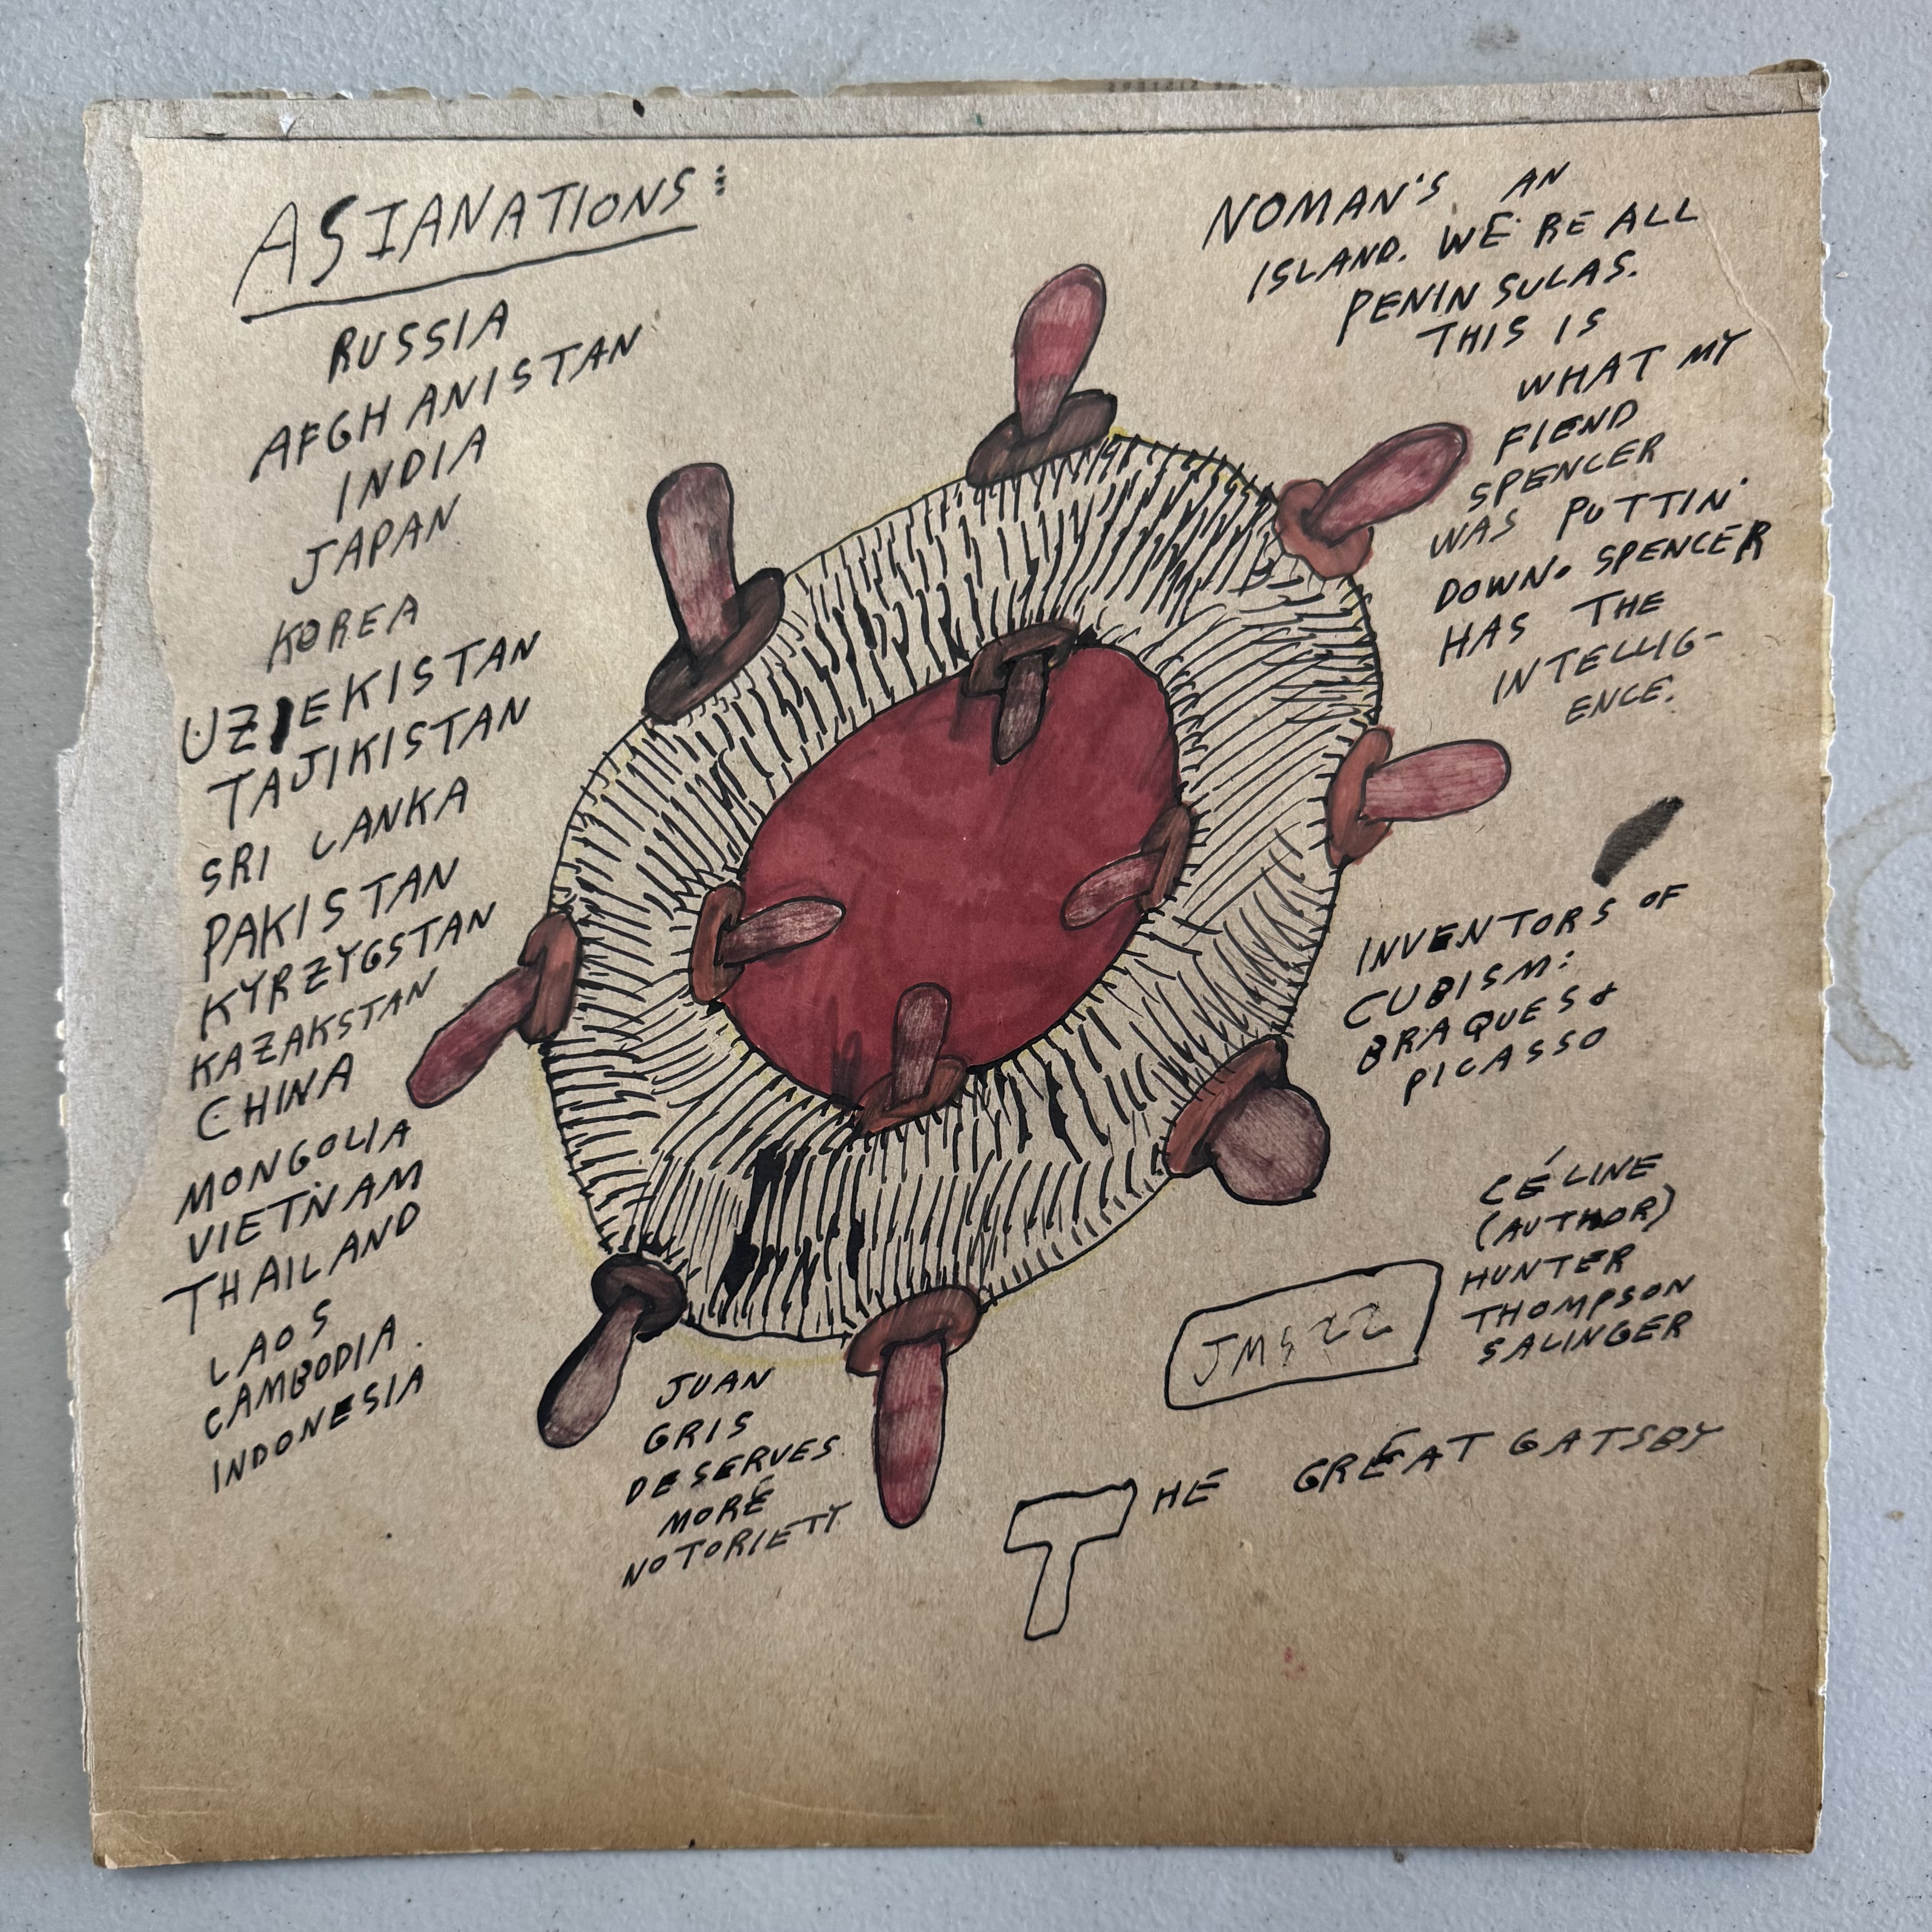 ASIANATIONS:
RUSSIA
AFGHANISTAN
INDIA
JAPAN
KOREA
UZIEKISTAN
TAJIKISTAN
SRI LANKA
PAKISTAN
KYRZYGSTAN
KAZAKSTAN
CHINA
MONGOLIA
VIETNAM
THAILAND
LAOS
CAMBODIA
INDONESIA
NOMAN'S AN
ISLAND. WE'RE ALL
PENINSULAS.
THIS IS
WHAT MY
FIEND
SPENCER
WAS PUTTIN'
DOWN. SPENCER
HAS THE
INTELLIG-
ENCE.
INVENTORS OF
CUBISM:
BRAQUES &
PICASSO
CÉLINE
(AUTHOR)
HUNTER
THOMPSON
SALINGER
JMS 22
JUAN
GRIS
DESERVES
MORE
NOTORIETY
THE GREAT GATSBY